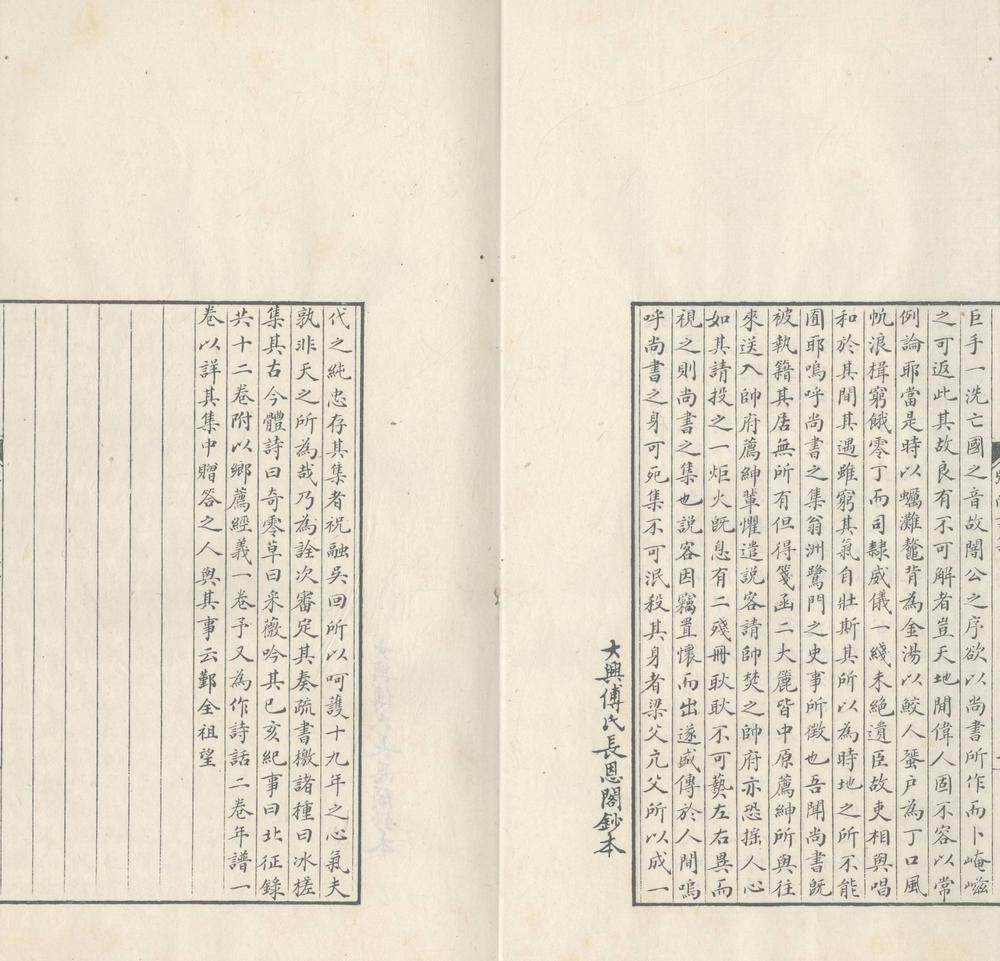 巨手一洗亡國之音故闇公之序欲以尚書所作而卜崦嵫
之可返此其故良有不可解者豈天地閒偉人固不容以常
例論耶當是時以蠣灘鼇背為金湯以鮫人蜑户為丁口風
帆浪楫窮餓零丁而司隸威儀一綫未絶遺臣故吏相與唱
和於其間其遇雖窮其氣自壯斯其所以為時地之所不能
囿耶嗚呼尚書之集翁洲鷺門之史事所徵也吾聞尚書既
被執籍其居無所有但得箋函二大麗皆中原薦紳所與往
來送入帥府薦紳輩懼遣説客請帥焚之帥府亦恐搖人心
如其請投之一炬火既息有二殘冊耿耿不可爇左右異而
視之則尚書之集也説客因竊置懷而出遂盛傳於人間嗚
呼尚書之身可死集不可泯殺其身者梁父亢父所以成一
大興傅氏長恩閣鈔本
代之純忠存其集者祝融吳回所以呵護十九年之心氣夫
孰非天之所為哉乃為詮次審定其奏疏書檄諸種曰冰槎
集其古今體詩曰奇零草曰采薇吟其己亥紀事曰北征錄
共十二卷附以鄉薦經義一卷予又為作詩話二卷年譜一
卷以詳其集中贈答之人與其事云鄞全祖望